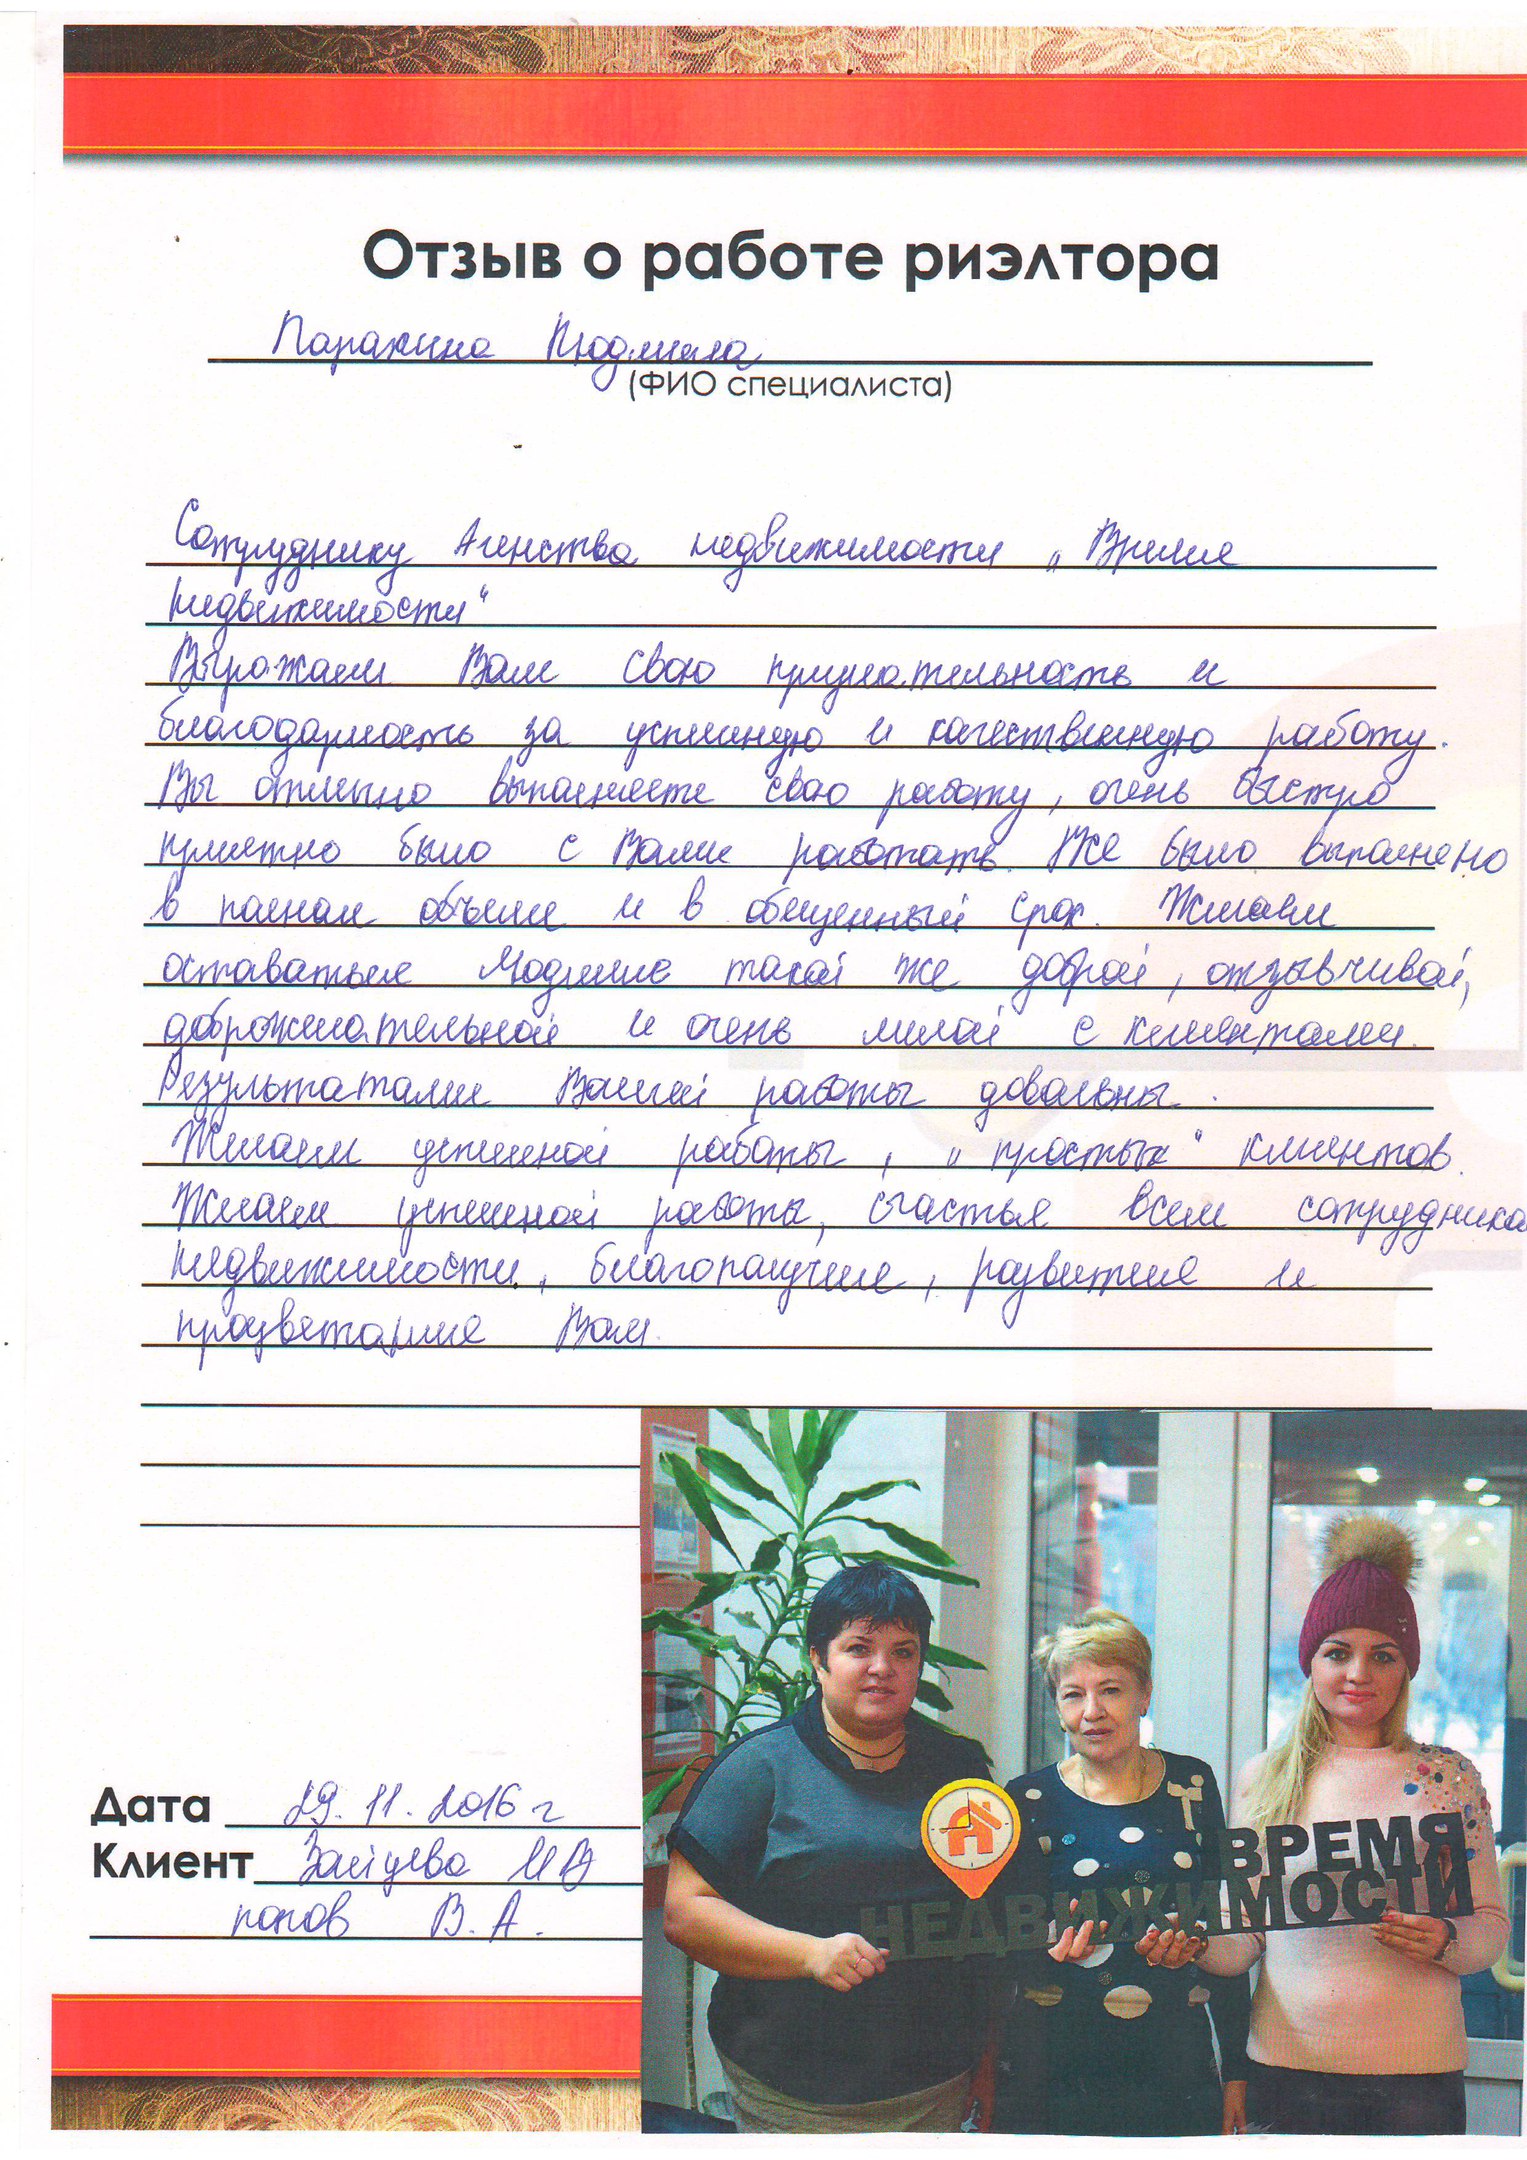 Отзыв о работе риэлтора
Паракина Людмила
(ФИО специалиста)
Сотруднику Агенства недвижимости „Время
Недвижимости“
Выражаем Вам свою признательность и
благодарность за успешную и качественную работу.
Вы отлично выполняете свою работу, очень быстро
приятно было с Вами работать. Все было выполнено
в полном объеме и в обещенный срок. Желаем
оставаться Людмиле такой же доброй, отзывчивой,
доброжелательной и очень милой с клиентами.
Результатами Вашей работы довольны.
Желаем успешной работы, „простых“ клиентов.
Желаем успешной работы, счастья всем сотрудника
Недвижимости, благополучие, развитие и
процветание Вам.
Дата 29.11.2016 г
Клиент Зайцева
попов В.А.
ВРЕМЯ
НЕДВИЖИМОСТИ